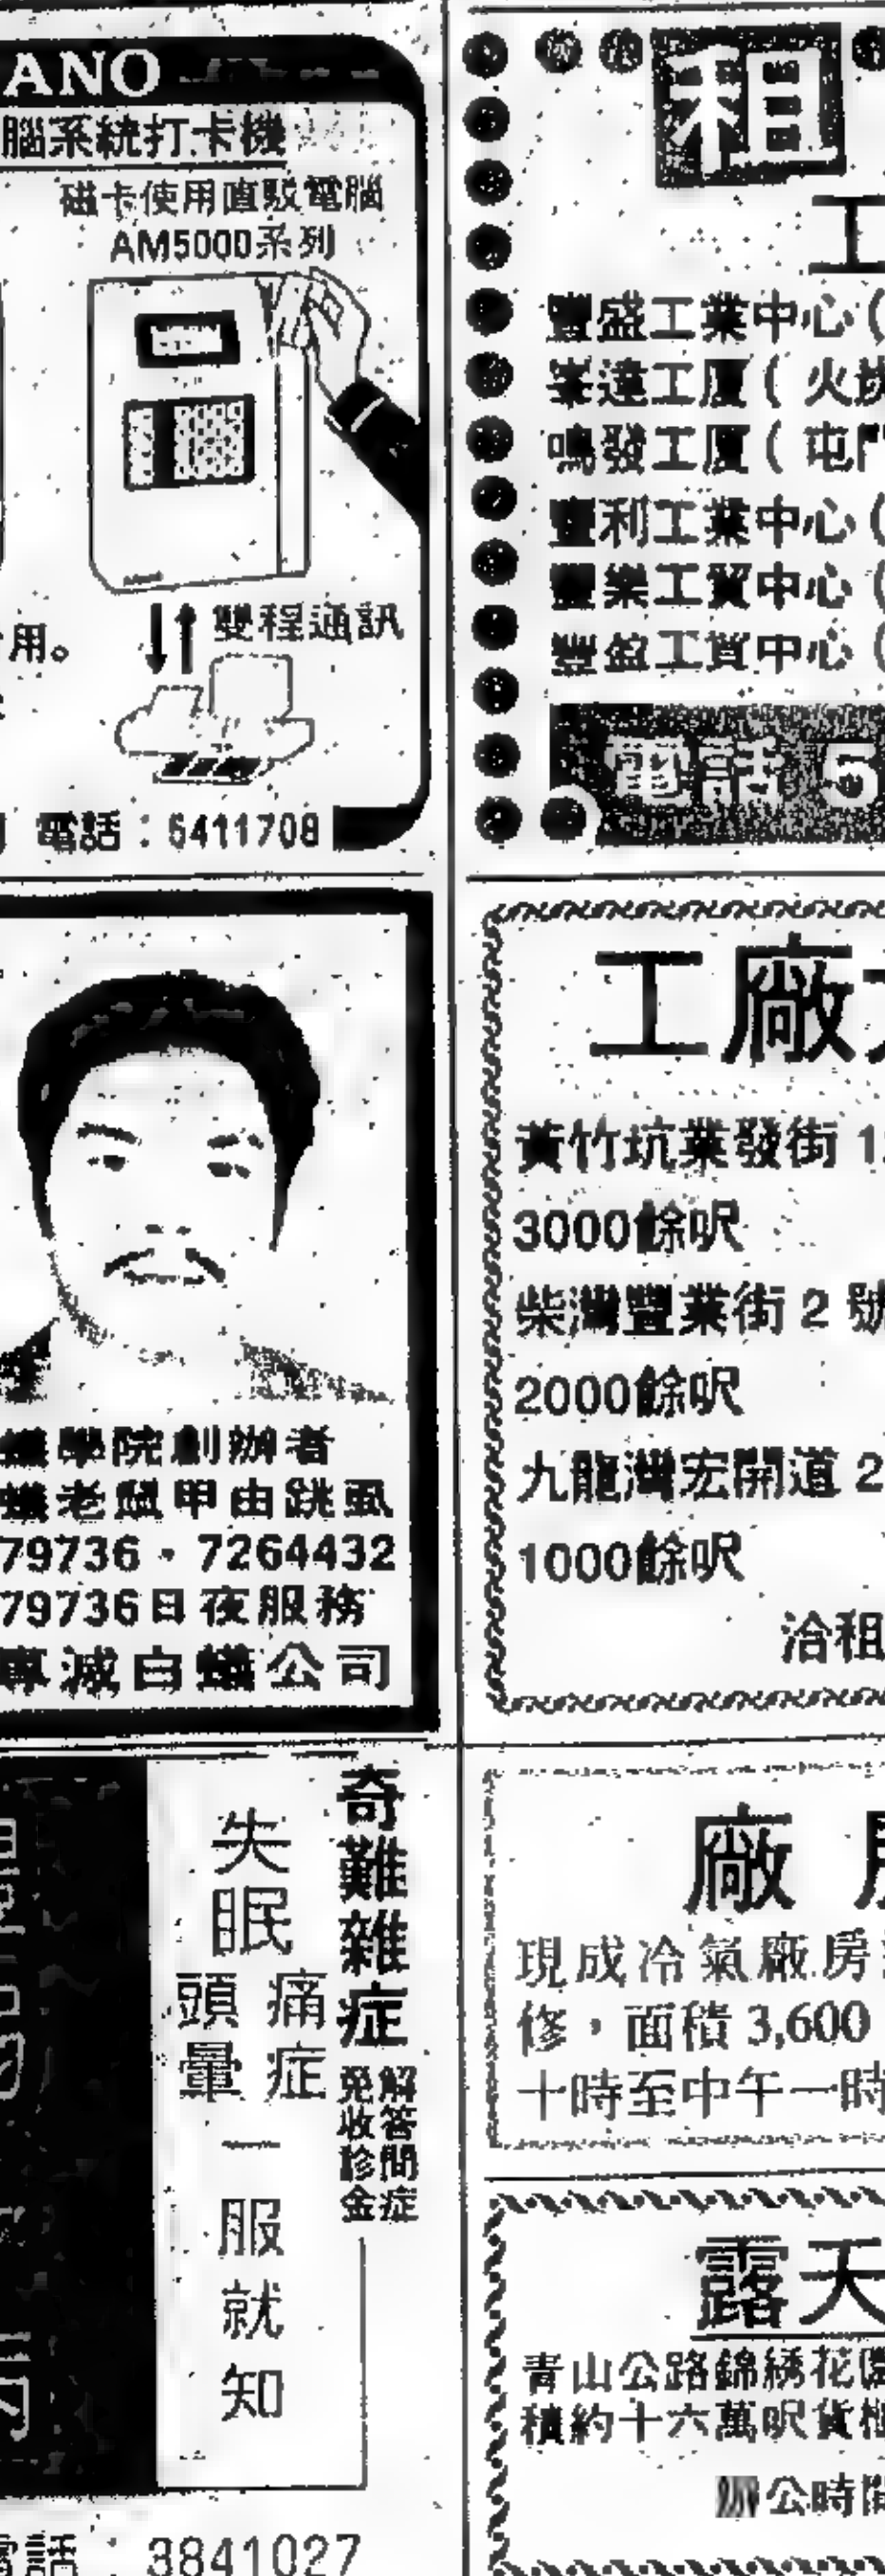 ANO
腦系統打卡機
磁卡使用直駁電腦
AM5000系列
用。
雙程通訊
電話：6411708
蟻學院創辦者
蟻老鼠甲由跳虱
79736・7264432
79736日夜服務
專滅白蟻公司
奇難雜症
解答問症
免收診金
失眠
痛症
頭暈
一服就知
電話：3841027
租
工
豐盛工業中心(
峯達工廈(火炭
鳴發工廈(屯門
豐利工業中心(
豐樂工貿中心(
豐盈工貿中心(
電話 5
工廠大
黃竹坑業發街 1
3000餘呎
柴灣豐業街 2 號
2000餘呎
九龍灣宏開道 2
1000餘呎
洽租
廠 房
現成冷氣廠房
修，面積3,600
十時至中午一時
露天
青山公路錦綉花園
積約十六萬呎貨櫃
公時間